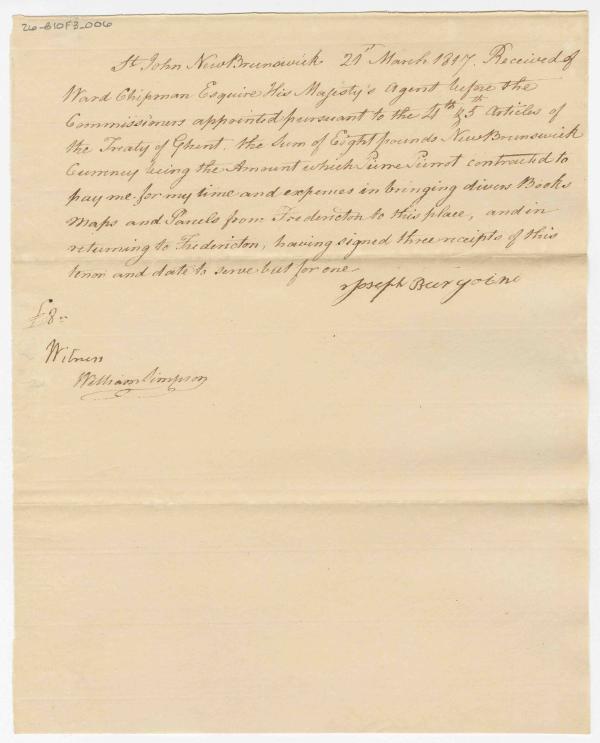 26-B10F3_006
St John New Brunswick 21st March 1817. Received of
Ward Chipman Esquire His Majesty's Agent before the
Commissioners appointed pursuant to the 4th & 5th Articles of
the Treaty of Ghent, the Sum of Eight pounds New Brunswick
Currency being the Amount which Pierre Pierrot contracted to
pay me for my time and expences in bringing divers Books
Maps and Parcels from Fredericton to this place, and in
returning to Fredericton, having signed three receipts of this
tenor and date to serve but for one
Joseph Burgoine
£8..
Witness
William Simpson